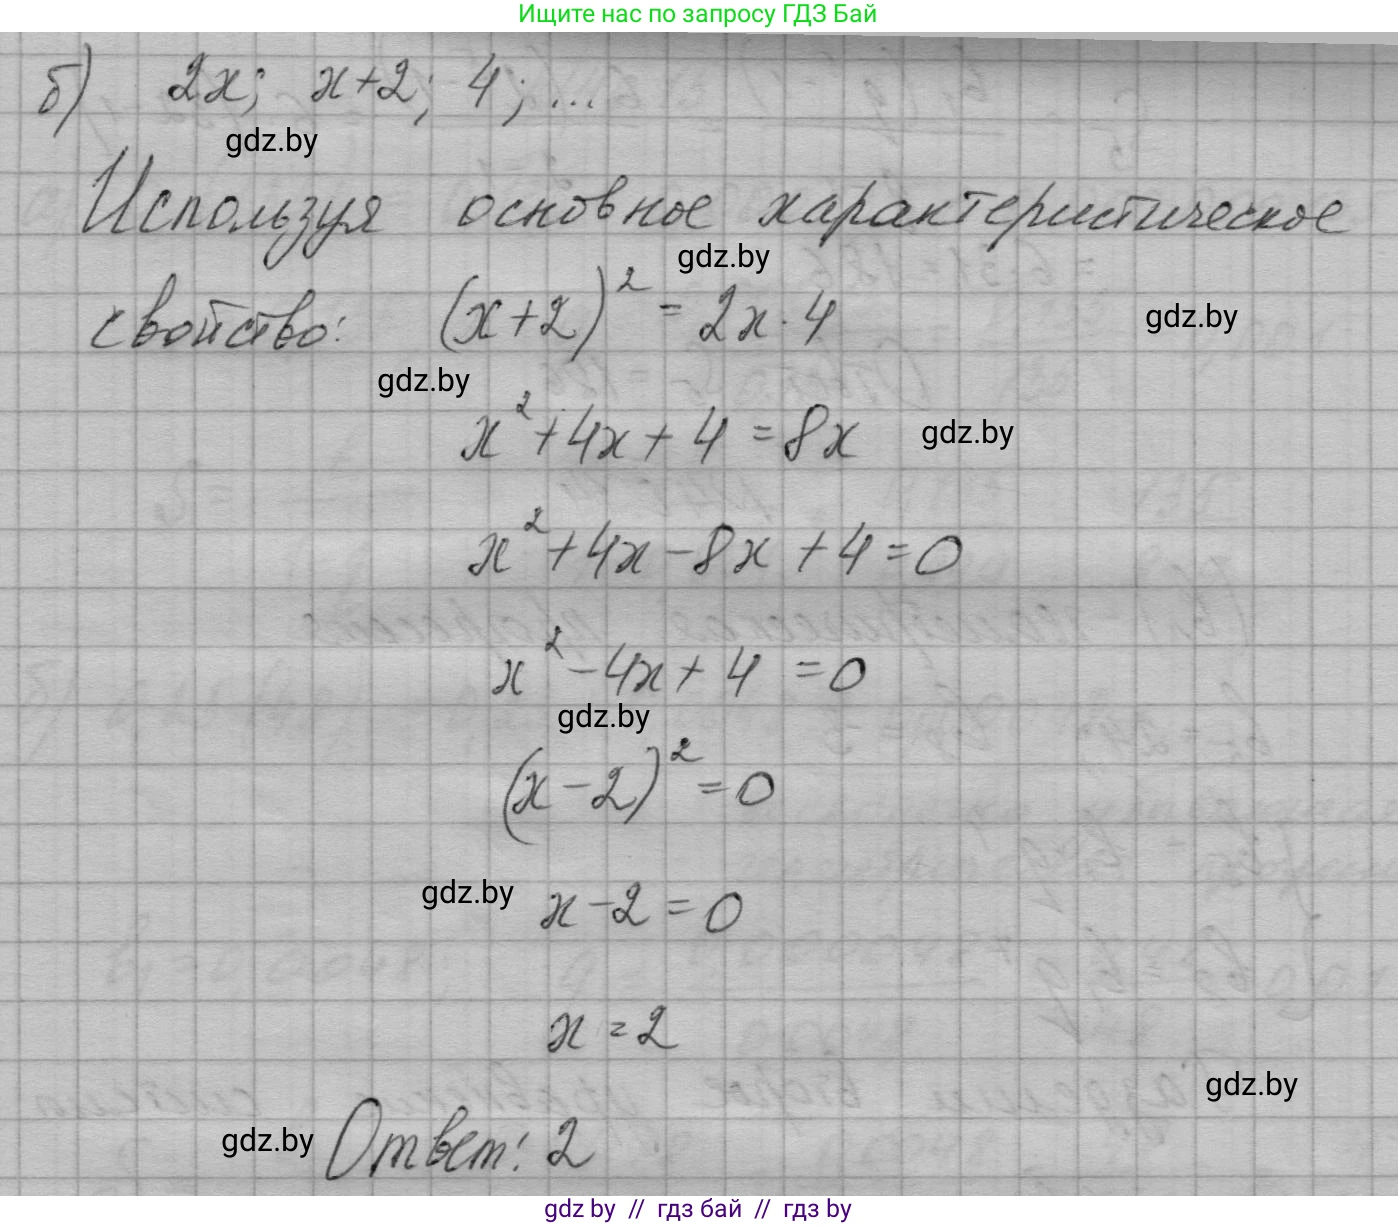 Ищите нас по запросу ГДЗ Бай
б) 2x; x+2; 4; ...
gdz.by
Используя основное характеристическое
gdz.by
свойство: (x+2)² = 2x·4
gdz.by
gdz.by
x²+4x+4=8x
gdz.by
x²+4x-8x+4=0
x²-4x+4=0
gdz.by
(x-2)²=0
gdz.by
x-2=0
x=2
gdz.by
gdz.by
Ответ: 2
gdz by // гдз бай // гдз by